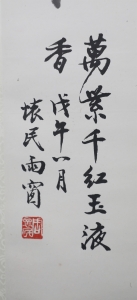 萬紫千紅玉液
香 戊午八月
懷民雨窗